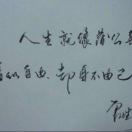 人生就像蒲公英
看似自由，却身不由己